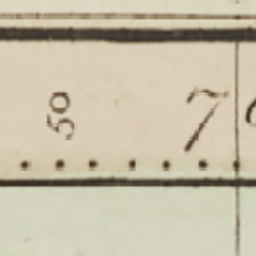 50
7